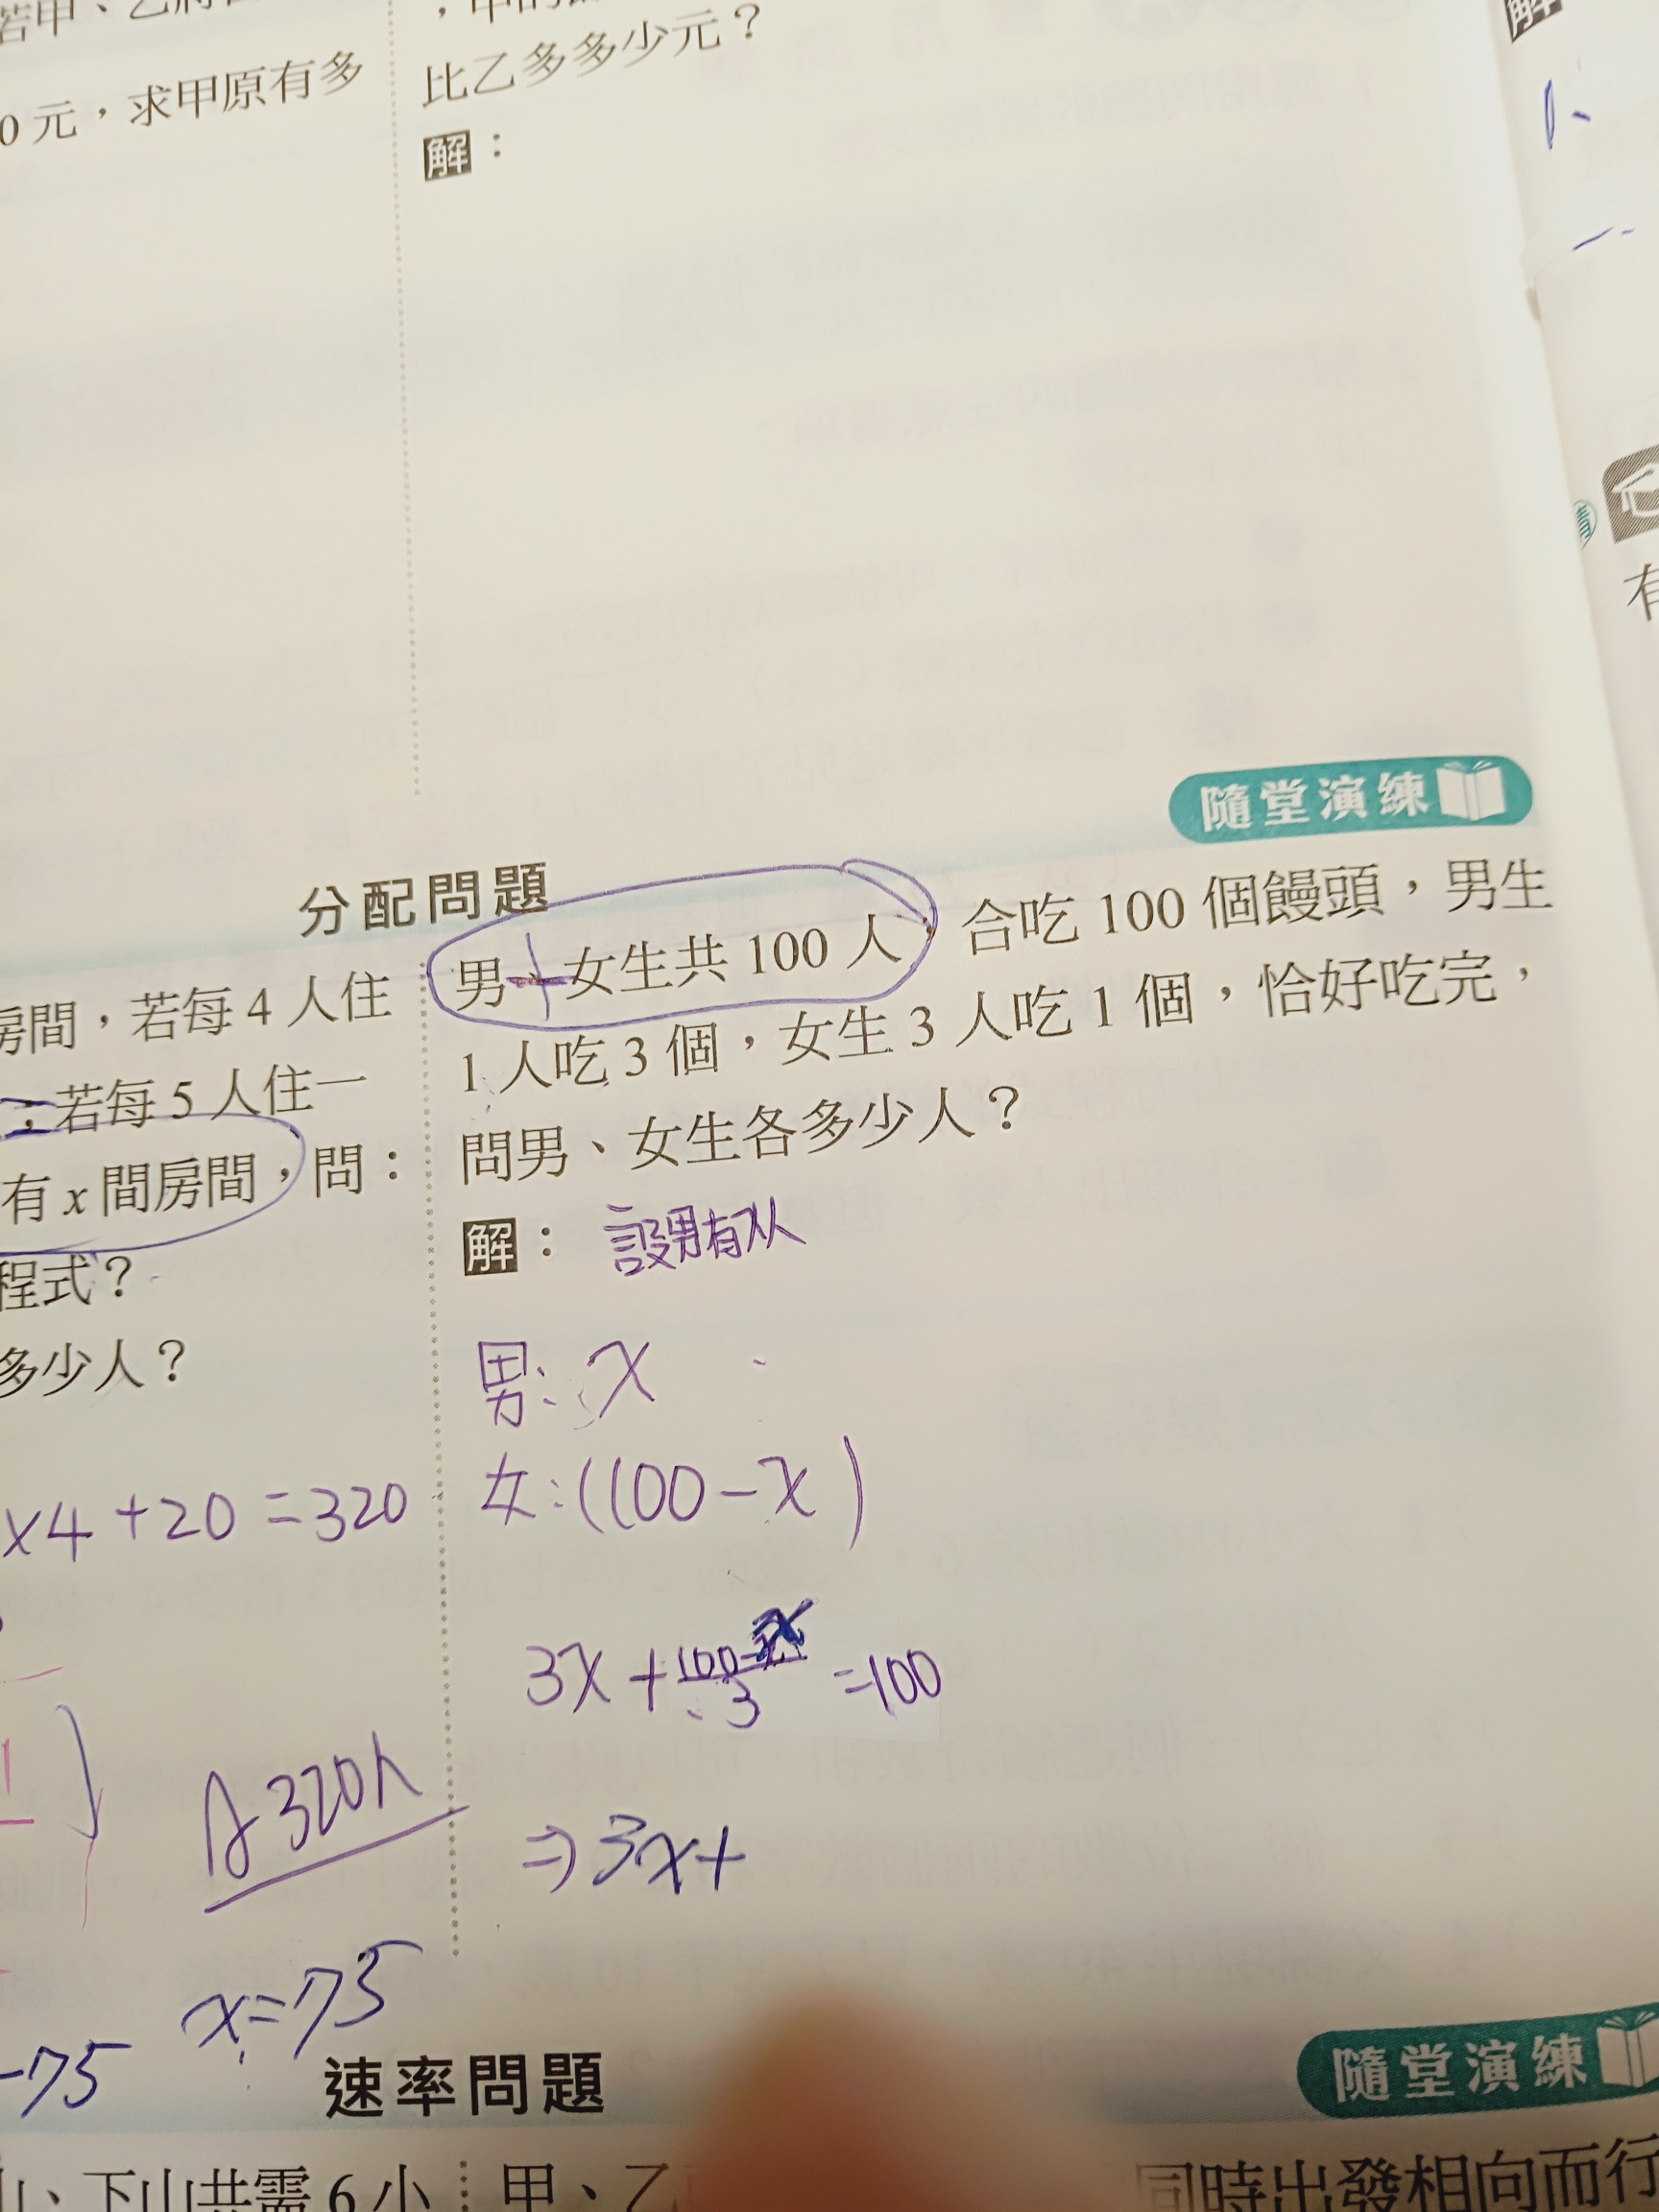 若甲、乙
0 元,求甲原有多
比乙多多少元?
解:
隨堂演練
分配問題
房間,若每 4 人住
若每 5 人住一
有 x 間房間,問:
程式?
多少人?
x4+20=320
A 320人
x=75
-75
男、女生共 100 人,合吃 100 個饅頭,男生
1 人吃 3 個,女生 3 人吃 1 個,恰好吃完,
問男、女生各多少人?
解: 設男有x人
男:x
女:(100-x)
3x+100-x/3=100
⇒3x+
隨堂演練
速率問題
山、下山共需 6 小
甲、乙
同時出發相向而行
解
有